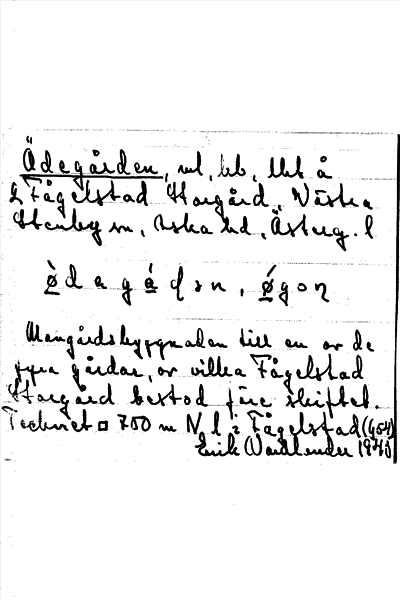 Ädegården, ml, bb, lht å
L Fågelstad Storgård, Västra
Stenby sn, Aska hd, Österg. l
ø̀ d a g á ḍ ə n, ǿ g o n
Mangårdsbyggnaden till en av de
fyra gårdar, av vilka Fågelstad
Storgård bestod före skiftet.
Tecknet □ 700 m N l i Fågelstad (G54)
Erik Wardlender 1940